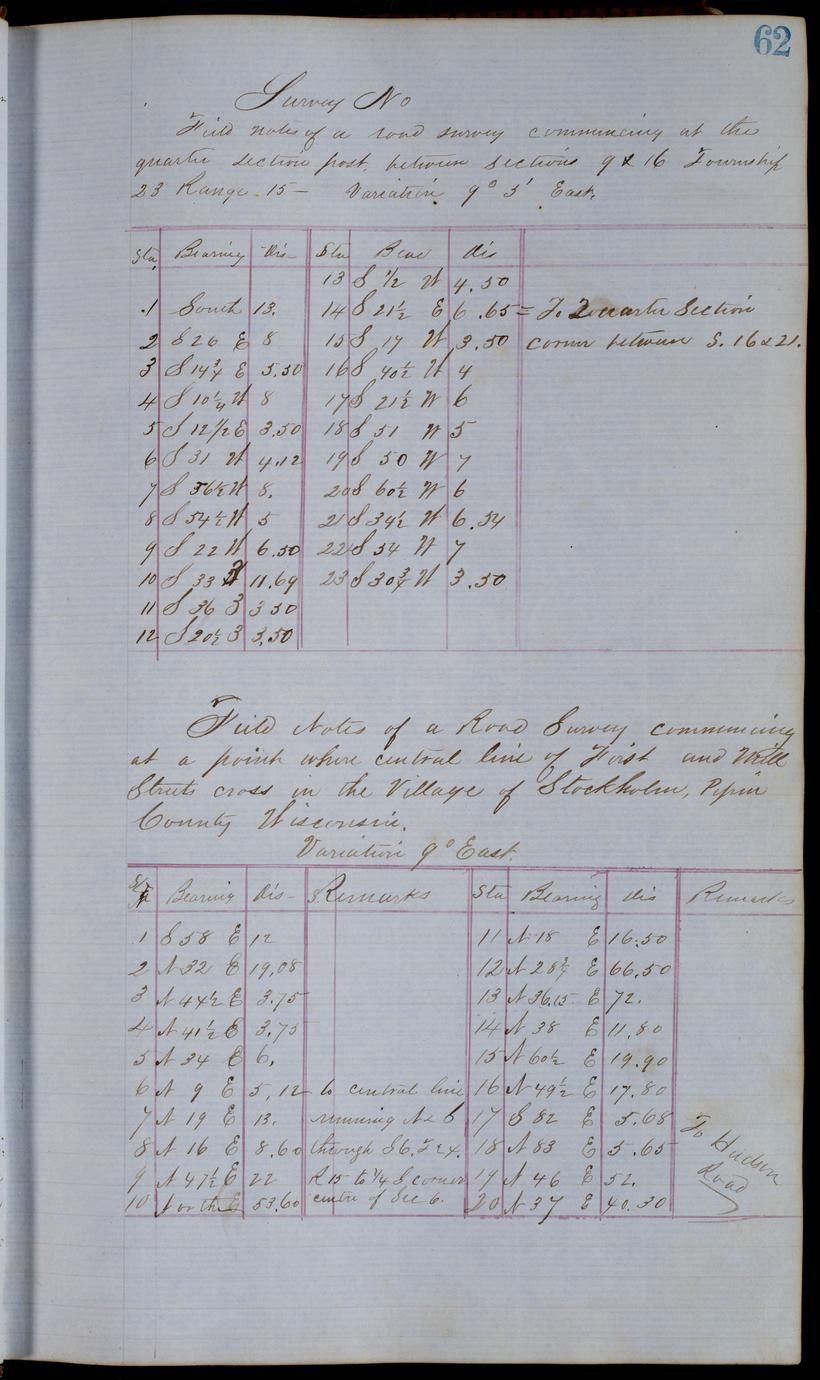 62
Survey No
Field notes of a road survey commencing at the
quarter section post, between sections 9 & 16 Township
23 Range 15 — Variation 9° 5' East.
Sta, Bearing Dis- Sta Bear dis
13 S 1/2 W 4.50
1 South 13. 14 S 21½ E 6.65 = To Quarter Section
2 S 26 E 8 15 S 17 W 3.50 corner between S. 16 & 21.
3 S 14¾ E 5.50 16 S 40½ W 4
4 S 10¼ W 8 17 S 21½ W 6
5 S 12 1/2 E 3.50 18 S 51 W 5
6 S 31 W 4.12 19 S 50 W 7
7 S 36½ W 8. 20 S 60½ W 6
8 S 54½ W 5 21 S 34½ W 6.54
9 S 22 W 6.50 22 S 54 W 7
10 S 33 11.69 23 S 30¾ W 3.50
11 S 36 E 3 50
12 S 20½ E 3.50
Field Notes of a Road Survey commencing
at a point where central line of First and Mill
Streets cross in the Village of Stockholm, Pepin
County Wisconsin.
Variation 9° East.
Sta Bearing Dis- Remarks Sta Bearing dis Remarks
1 S 58 E 12 11 N 18 E 16.50
2 N 32 E 19,08 12 N 28¾ E 66.50
3 N 44½ E 3.75 13 N 36.15 E 72.
4 N 41½ E 3.75 14 N 38 E 11.80
5 N 34 E 6, 15 N 60½ E 19.90
6 N 9 E 5,12 to central line 16 N 49½ E 17.80
7 N 19 E 13. running N & S 17 S 82 E 5.68
8 N 16 E 8.60 through S 6. T 24. 18 N 83 E 5.65
9 N 47½ E 22 R 15 to ¼ S. corner 19 N 46 E 52.
10 North 53.60 centre of Sec 6. 20 N 37 E 40.30
To Hudson
Road